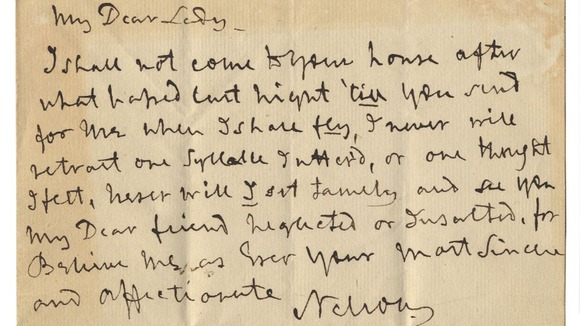 My Dear Lady –
I shall not come to your house after
what haped last night 'till you send
for Me when I shall fly, I never will
retract one Syllable I utterd, or one thought
I felt, Never will I set tamely and see you
My Dear friend neglected or Insulted, for
Believe Me as Ever your Most Sincere
and affectionate Nelson